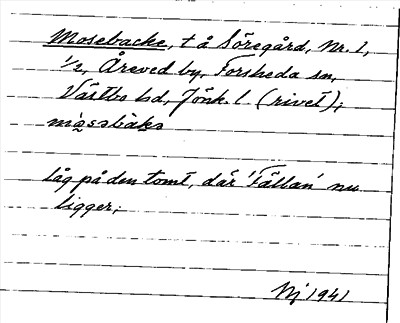 Mosebacke, t å Söregård, Nr. 1,
1/2, Åreved by, Forsheda sn,
Västbo hd, Jönk. l. (rivet);
mo̰̱ssbàka
låg på den tomt, där 'Fällan' nu
ligger;
Nj 1941